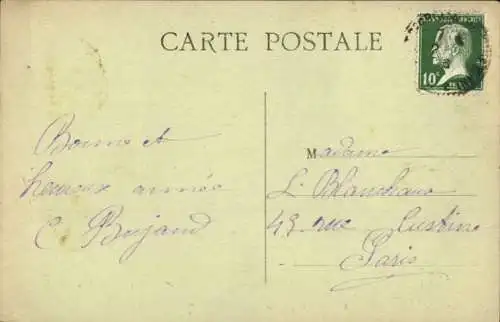 CARTE POSTALE
10c
Bonne et
heureux année
C Bujard
Madame
L Blanchard
43 rue Custine
Paris